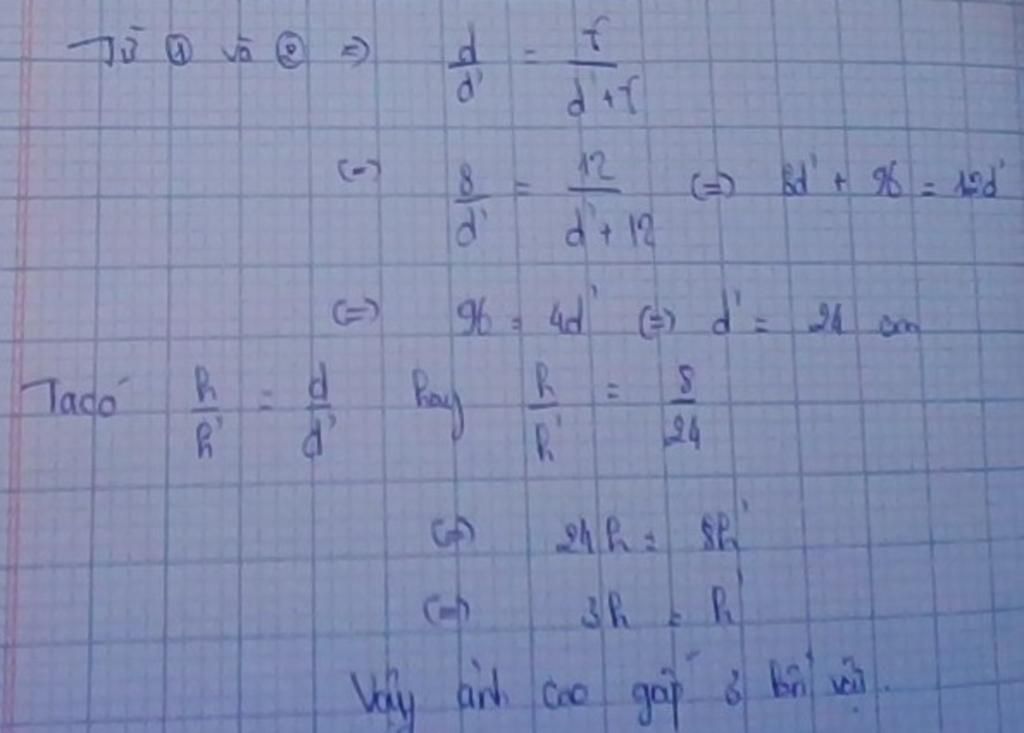 Từ ① và ② => d/d' = f/(d'+f)
<=> 8/d' = 12/(d'+12) <=> 8d' + 96 = 12d'
<=> 96 = 4d' <=> d' = 24 cm
Ta có h/h' = d/d' hay h/h' = 8/24
<=> 24h = 8h'
<=> 3h = h'
Vậy ảnh cao gấp 3 lần vật.